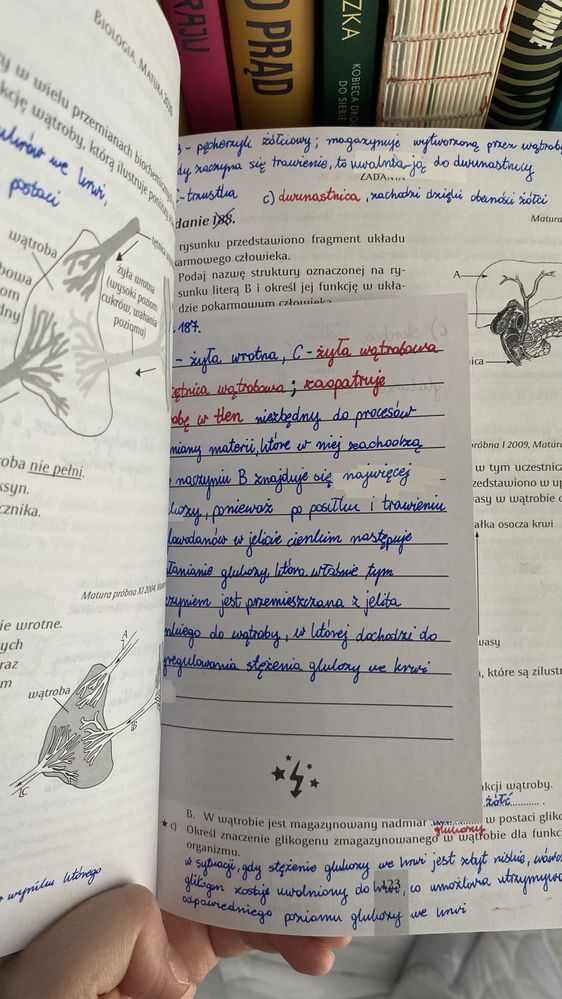 RAJU
O PRĄD
ZKA
KOBIECA DROG
DO SIEBIE
OWNIE
BIOLOGIA. MATURA
y w wielu przemianach biochemicznych
kcję wątroby, którą ilustruje poniższy
cukrów we krwi,
postaci
wątroba
bowa
om
dny
żyła wrotna
(wysoki poziom
cukrów, wahania
poziomu)
roba nie pełni.
ksyn.
cznika.
Matura próbna XI 2004,
ie wrotne.
ych
raz
m
wątroba
A
B
C
w wyniku którego
B - pęcherzyk żółciowy; magazynuje wytworzoną przez wątrobę
dy zaczyna się trawienie, to uwalnia ją do dwunastnicy
ZADANIA
C-trzustka c) dwunastnica, zachodzi dzięki obecności żółci
danie 188.
Matura
rysunku przedstawiono fragment układu
karmowego człowieka.
Podaj nazwę struktury oznaczonej na ry-
sunku literą B i określ jej funkcję w ukła-
dzie pokarmowym człowieka.
A
nica
187.
- żyła wrotna, C - żyła wątrobowa
tętnica wątrobowa; zaopatruje
obę w tlen niezbędny do procesów
miany materii, które w niej zachodzą
naczyniu B znajduje się najwięcej
ukozy, ponieważ po posiłku i trawieniu
lowodanów w jelicie cienkim następuje
łanianie glukozy, która właśnie tym
czyniem jest przemieszczana z jelita
nkiego do wątroby, w której dochodzi do
regulowania stężenia glukozy we krwi
róbna I 2009, Matura
w tym uczestnicz
zedstawiono w up
asy w wątrobie c
ałka osocza krwi
wasy
, które są zilust
nkcji wątroby.
żółć
B. W wątrobie jest magazynowany nadmiar glukozy w postaci gliko
c) Określ znaczenie glikogenu zmagazynowanego w wątrobie dla funkc
organizmu.
w sytuacji, gdy stężenie glukozy we krwi jest zbyt niskie, wówczas
glikogen zostaje uwolniony do krwi, co umożliwia utrzymywa
123
odpowiedniego poziomu glukozy we krwi